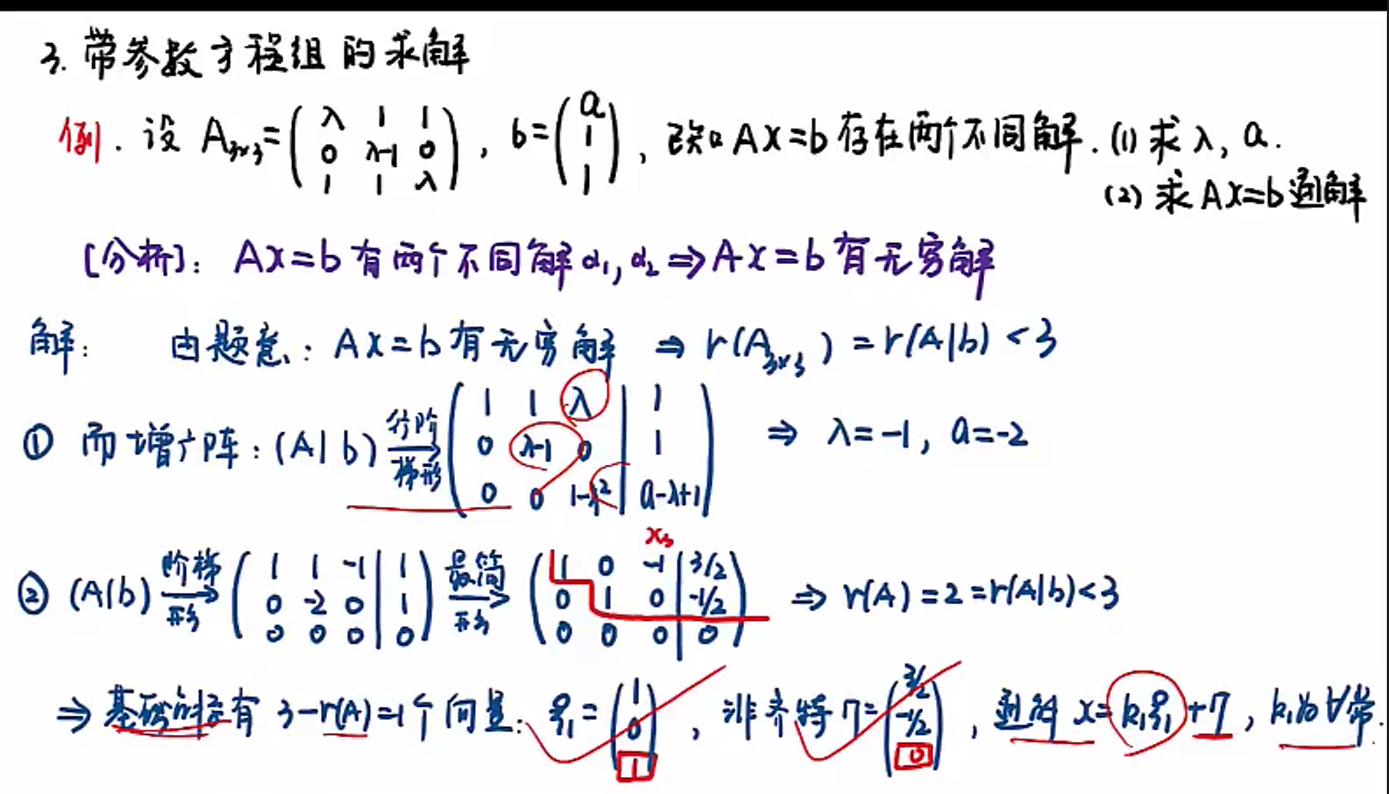 3. 带参数方程组的求解
例. 设 A₃ₓ₃=(λ 1 1; 0 λ-1 0; 1 1 λ), b=(a; 1; 1), 已知 AX=b 存在两个不同解. (1) 求 λ, a.
(2) 求 AX=b 通解
[分析]: AX=b 有两个不同解 α₁, α₂ ⇒ AX=b 有无穷解
解: 由题意: AX=b 有无穷解 ⇒ r(A₃ₓ₃) = r(A|b) < 3
① 而增广阵: (A|b) 行阶梯形→ (1 1 λ | 1; 0 λ-1 0 | 1; 0 0 1-λ² | a-λ+1) ⇒ λ=-1, a=-2
x₃
② (A|b) 阶梯形→ (1 1 -1 | 1; 0 -2 0 | 1; 0 0 0 | 0) 最简形→ (1 0 -1 | 3/2; 0 1 0 | -1/2; 0 0 0 | 0) ⇒ r(A)=2=r(A|b)<3
⇒ 基础解系有 3-r(A)=1个向量: ξ₁=(1; 0; 1), 非齐特 η=(3/2; -1/2; 0), 通解 x=k₁ξ₁+η, k₁为∀常.